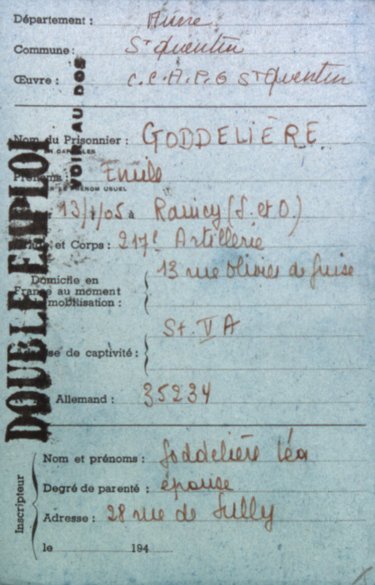 Département : Aisne
Commune : St Quentin
Œuvre : C.C.A.P.G St Quentin
VOIR AU DOS
DOUBLE EMPLOI
Nom du Prisonnier : GODDELIÈRE
Prénoms : Emile
PRÉNOM USUEL
13/1/05 à Raincy (S. et O.)
et Corps : 217e Artillerie
Domicile en
France au moment
mobilisation :
13 rue Olivier de Guise
de captivité :
St. VA
Allemand : 35234
Inscripteur
Nom et prénoms : Goddelière Léa
Degré de parenté : épouse
Adresse : 28 rue de Sully
le 194